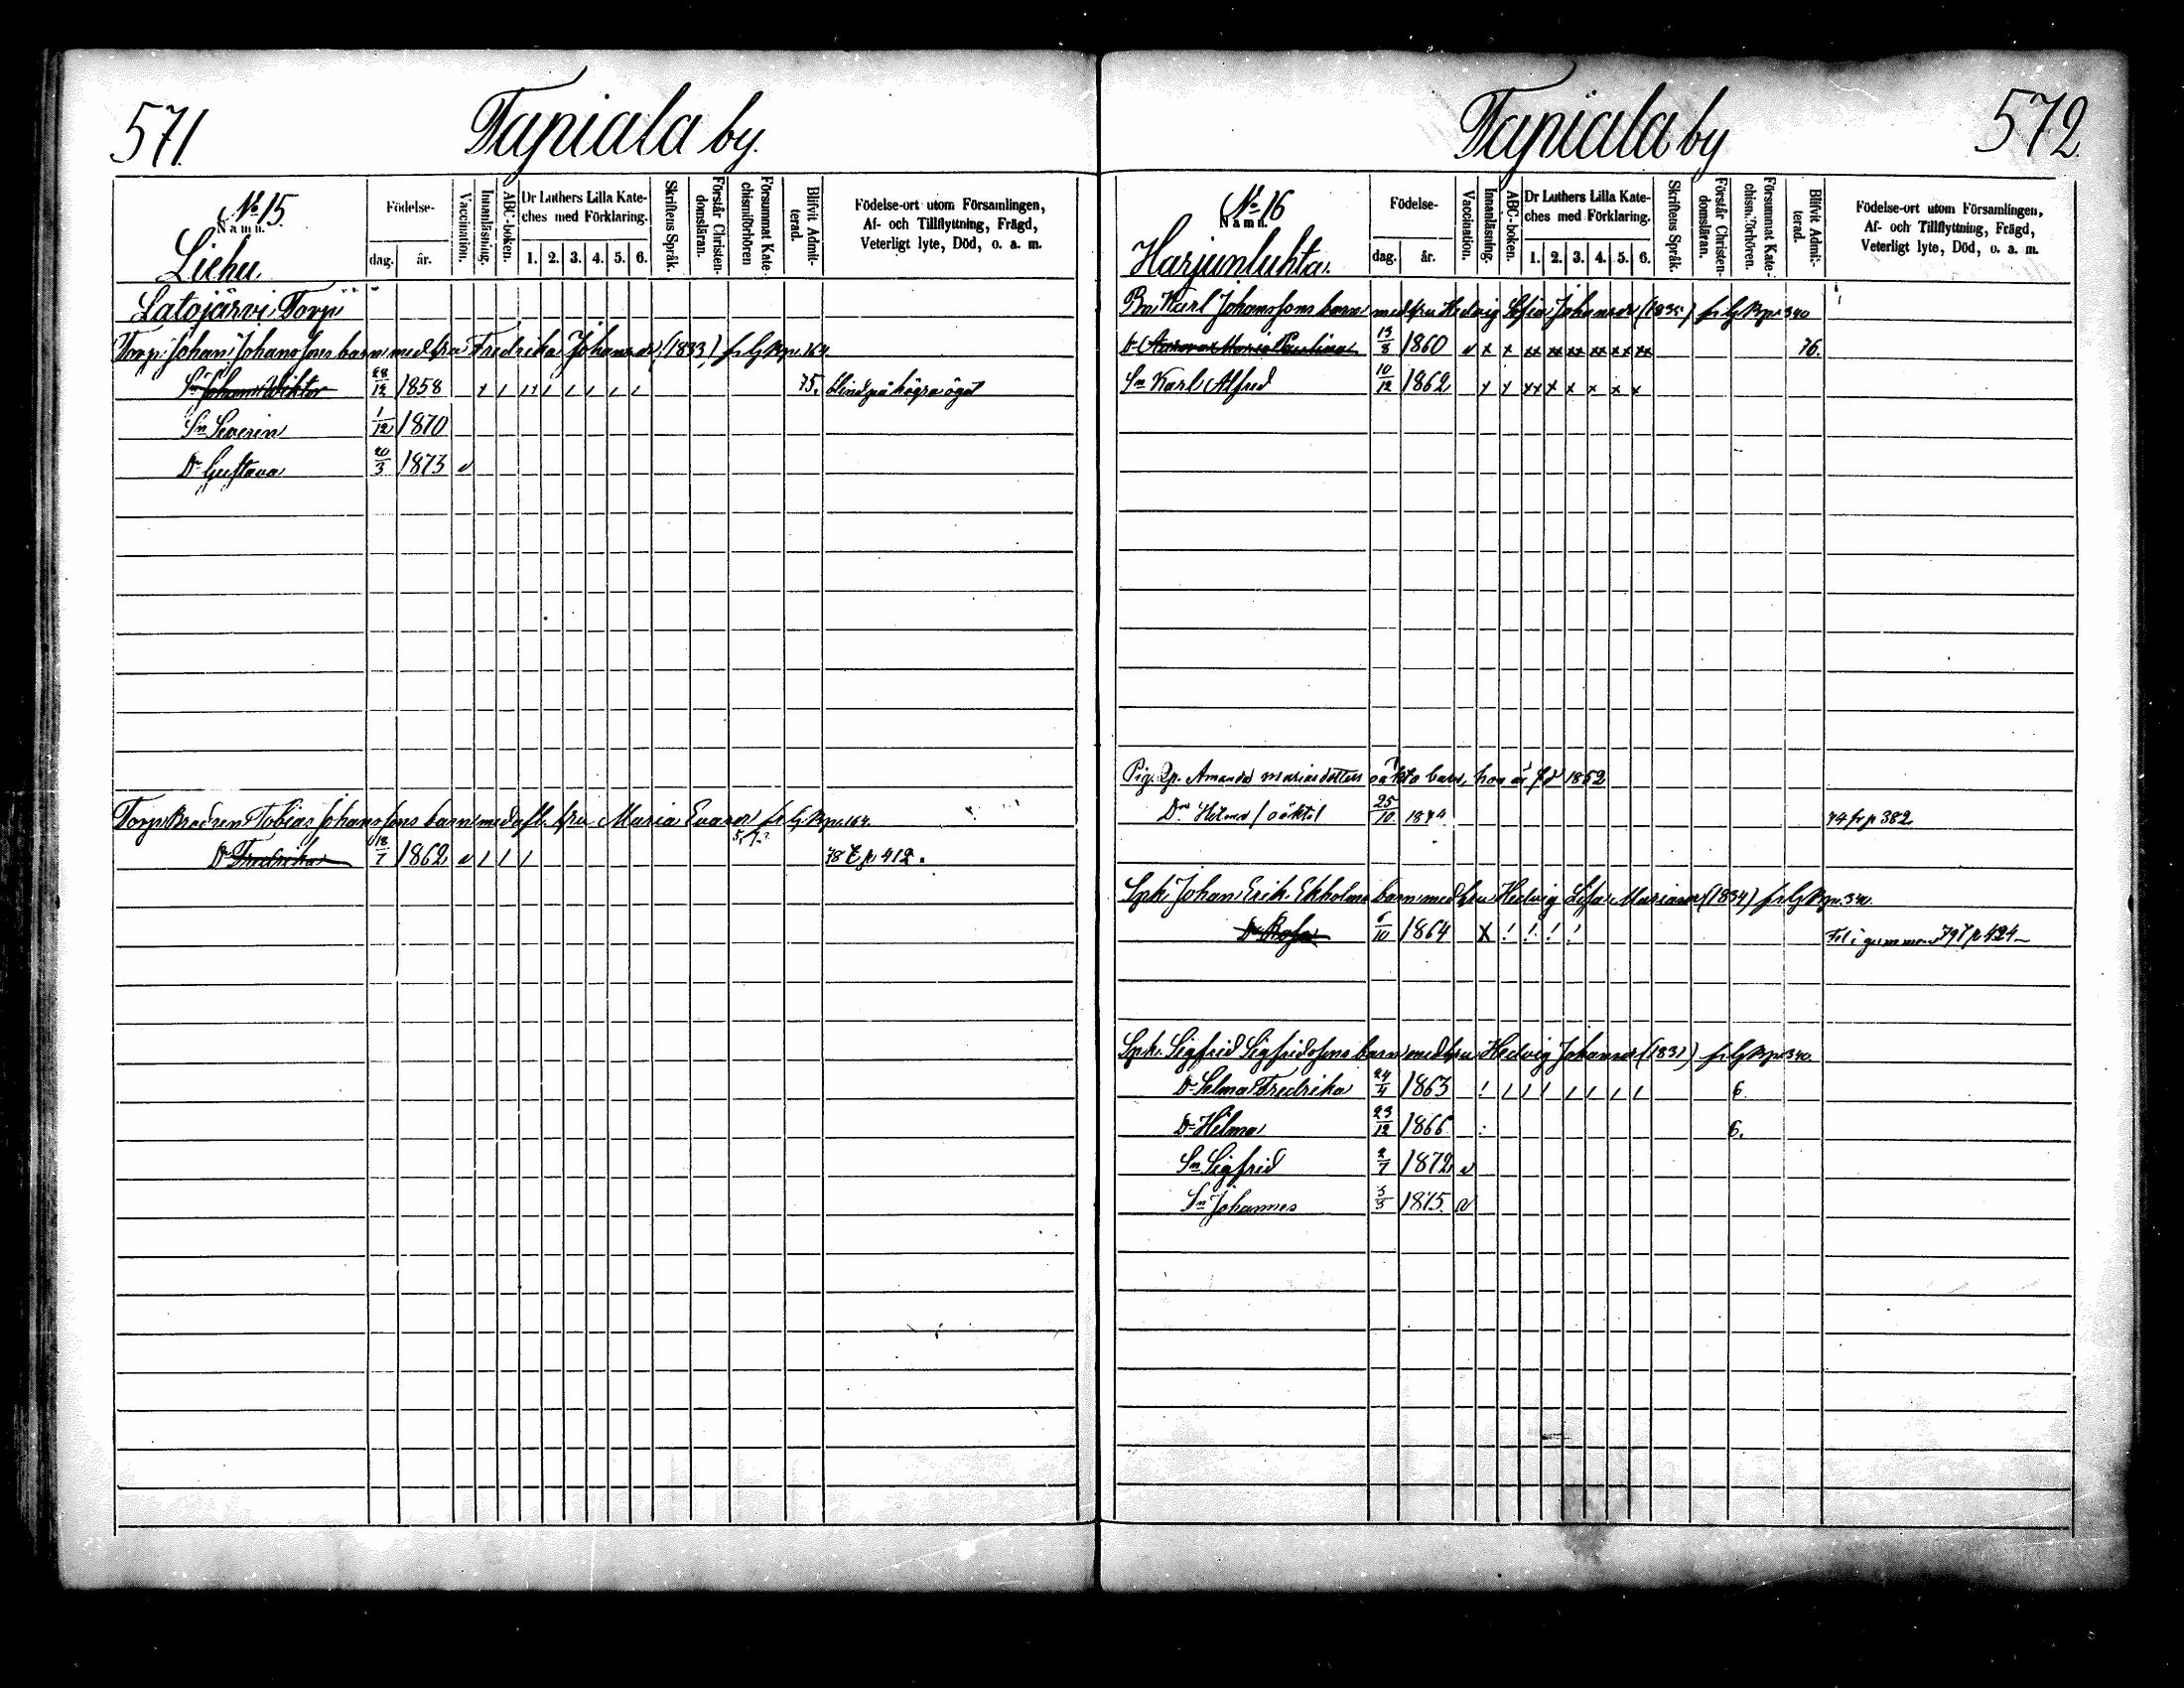 571.
Tapiala by.
No 15.
Namn.
Liehu
Födelse-
dag.
år.
Vaccination.
Innanläsning.
ABC-boken.
Dr Luthers Lilla Kate-
ches med Förklaring.
1. 2. 3. 4. 5. 6.
Skriftens Språk.
Förstår Christen-
domsläran.
Försummat Kate-
chismiförhören
Blifvit Admit-
terad.
Födelse-ort utom Församlingen,
Af- och Tillflyttning, Frägd,
Veterligt lyte, Död, o. a. m.
Latojärvi Torp
Torp. Johan Johanssons barn med hru Fredrika Johansdr (1833) fr LgBp. 164.
Sn Johan Wiktor 28/12 1858 75. blind på högra ögat
Sn Severin 1/12 1870
Dr Gustava 20/3 1873 v
Torp. Brodren Tobias Johanssons barn med afl. hru Maria Evasdr fr LgBp. 164.
Dr Fredrika 18/7 1862 v 78 t p 412.
572.
Tapiala by
No 16
Namn.
Harjunluhta.
Födelse-
dag.
år.
Vaccination.
Innanläsning.
ABC-boken.
Dr Luthers Lilla Kate-
ches med Förklaring.
1. 2. 3. 4. 5. 6.
Skriftens Språk.
Förstår Christen-
domsläran.
Försummat Kate-
chism. förhören.
Blifvit Admit-
terad.
Födelse-ort utom Församlingen,
Af- och Tillflyttning, Frägd,
Veterligt lyte, Död, o. a. m.
Bn Karl Johanssons barn med hru Hedvig Sofia Johansdr (1835) fr LgBp. 340
dr Maria Paulina 13/8 1860 v x x xx xx xx xx xx xx 76.
Sn Karl Alfred 10/12 1862 x x xx x x x x x
Pig. Amanda Mariasdotters oäkta barn, hon är fd 1852
Dr Helma (oäkta) 25/10 1874 74 fr p 382
Spk. Johan Erik Ekholms barn med hru Hedvig Lisa Mariasdr (1834) fr LgBp. 340.
Dr Rosa 6/10 1864 X Fel i 79 t p 424
Spk. Sigfrid Sigfridssons barn med hru Hedvig Johansdr (1831) fr LgBp. 340.
Dr Selma Fredrika 24/4 1863 6.
Dr Hilma 23/12 1866 6.
Sn Sigfrid 2/7 1872 v
Sn Johannes 5/5 1875. v